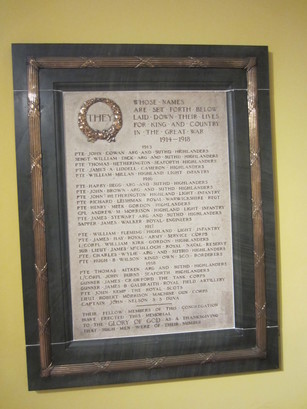 THEY
WHOSE NAMES
ARE SET FORTH BELOW
LAID DOWN THEIR LIVES
FOR KING AND COUNTRY
IN THE GREAT WAR
1914-1918
1915
PTE JOHN COWAN ARG AND SUTHD HIGHLANDERS
SERGT WILLIAM DICK ARG AND SUTHD HIGHLANDERS
PTE THOMAS HETHERINGTON SEAFORTH HIGHLANDERS
PTE JAMES A LIDDELL CAMERON HIGHLANDERS
PTE WILLIAM MILLAN HIGHLAND LIGHT INFANTRY
1916
PTE HARRY BEGG ARG AND SUTHD HIGHLANDERS
PTE JOHN BROWN ARG AND SUTHD HIGHLANDERS
PTE JOHN HETHERINGTON HIGHLAND LIGHT INFANTRY
PTE RICHARD LEISHMAN ROYAL WARWICKSHIRE REGT
PTE HUGH MEEK GORDON HIGHLANDERS
CPL ANDREW H MORRISON HIGHLAND LIGHT INFANTRY
PTE JAMES STEWART ARG AND SUTHD HIGHLANDERS
SAPPER JAMES WALKER ROYAL ENGINEERS
1917
PTE WILLIAM FLEMING HIGHLAND LIGHT INFANTRY
PTE JAMES HAY ROYAL ARMY SERVICE CORPS
L/CORPL WILLIAM KIRK GORDON HIGHLANDERS
SUB-LIEUT JAMES ROYAL NAVAL RESERVE
PTE CHARLES WYLIE ARG AND SUTHD HIGHLANDERS
PTE HUGH R WILSON KINGS OWN SCO. BORDERERS
1918
PTE THOMAS AITKEN ARG AND SUTHD HIGHLANDERS
L/CORPL JOHN SEAFORTH HIGHLANDERS
GUNNER JAMES CRAWFORD THE TANK CORPS
GUNNER JAMES B GALBRAITH ROYAL FIELD ARTILLERY
PTE JOHN KEMP THE ROYAL SCOTS
LIEUT ROBERT MORRISON MACHINE GUN CORPS
CAPTAIN JOHN NELSON
THEIR FELLOW MEMBERS OF THIS CONGREGATION
HAVE ERECTED THIS MEMORIAL
TO THE GLORY OF GOD AS A THANKSGIVING
THAT SUCH MEN WERE OF THEIR NUMBER